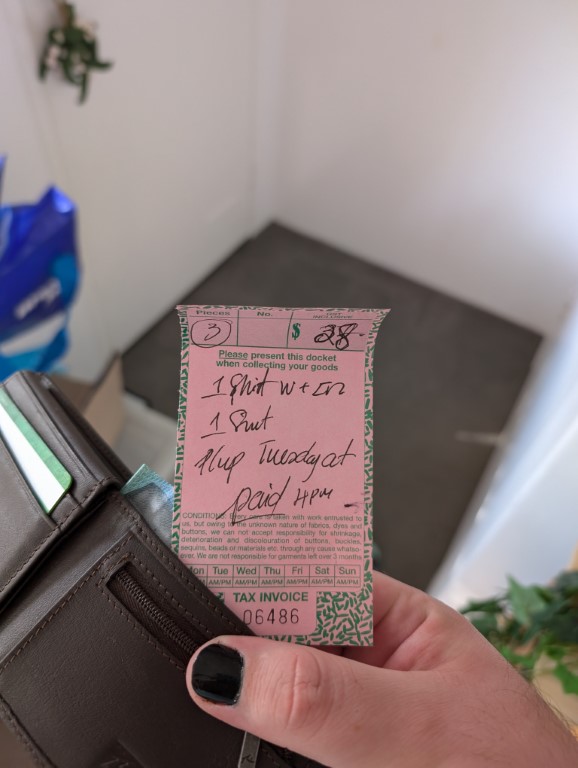 Pieces No. $
3 28-
Please present this docket
when collecting your goods
1 Shirt w +
1 Suit
P/up Tuesday at
paid 4pm
CONDITIONS: Every care is taken with work entrusted to
us, but owing to the unknown nature of fabrics, dyes and
buttons, we can not accept responsibility for shrinkage,
deterioration and discolouration of buttons, buckles,
sequins, beads or materials etc. through any cause whatso-
ever. We are not responsible for garments left over 3 months
Mon Tue Wed Thu Fri Sat Sun
AM/PM AM/PM AM/PM AM/PM AM/PM AM/PM
TAX INVOICE
06486